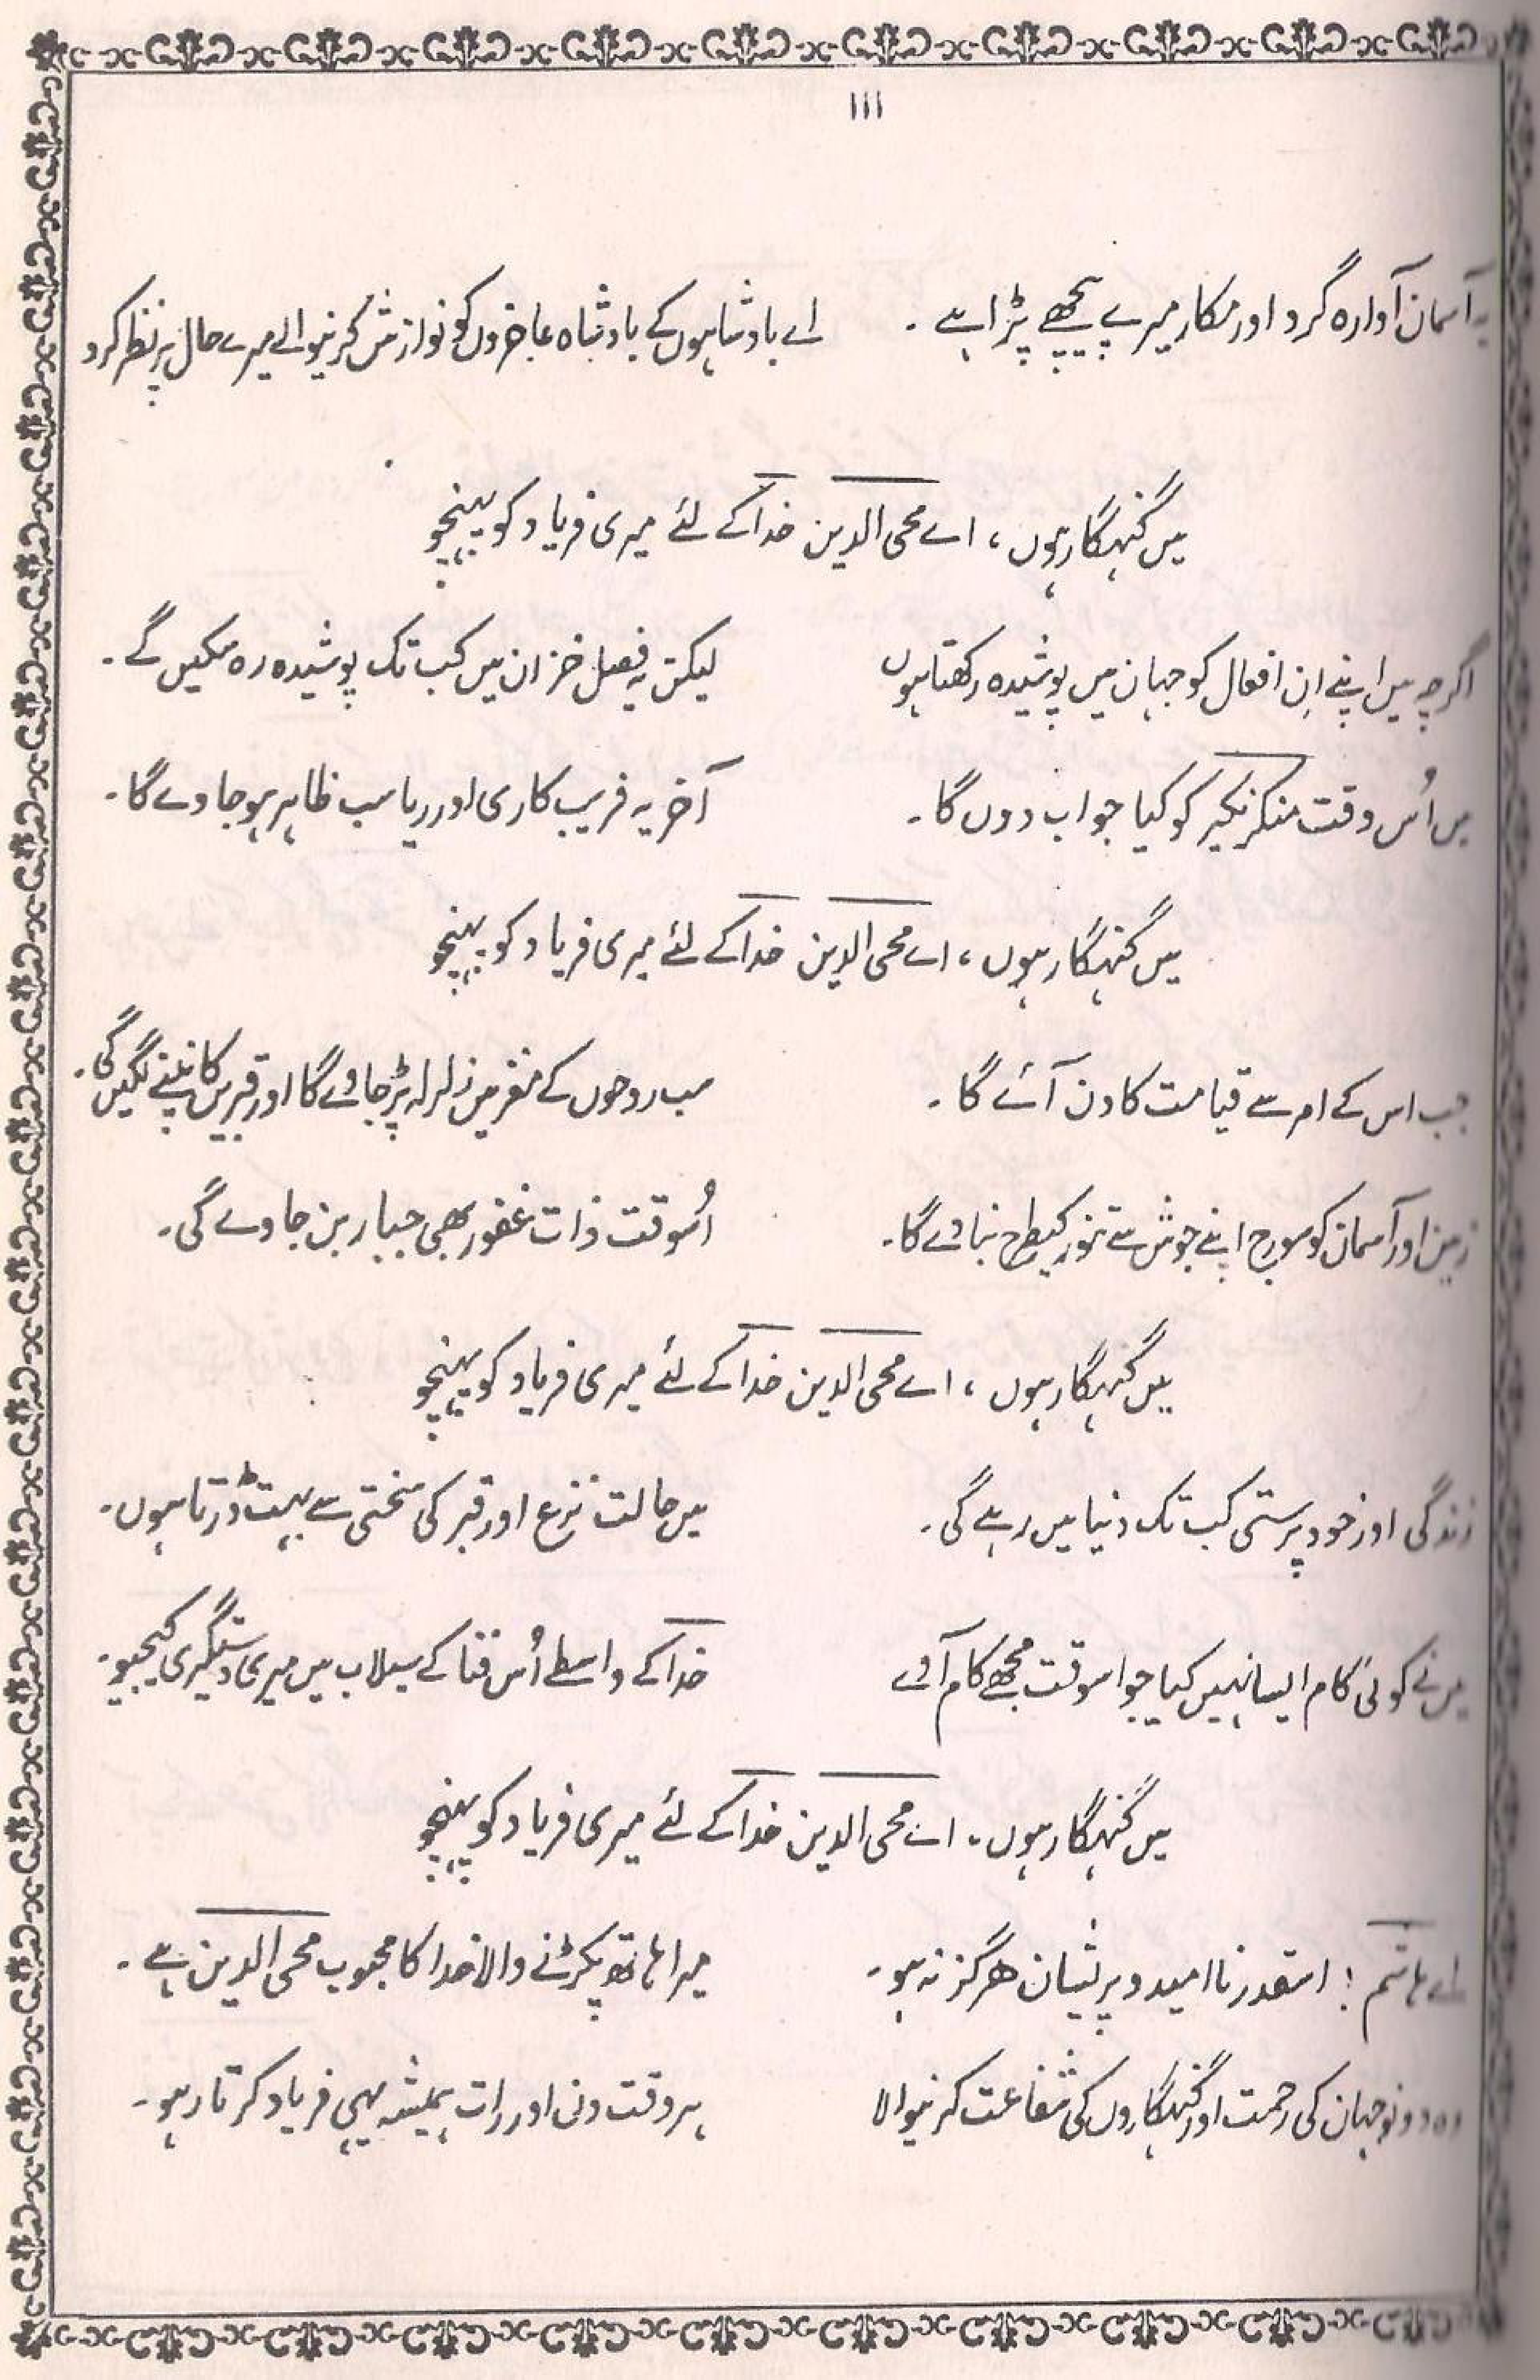 ۱۱۱
یہ آسمان آوارہ گرد اور مکار میرے پیچھے پڑا ہے ۔ اے بادشاہوں کے بادشاہ عاجزوں کو نوازش کرنیوالے میرے حال پر نظر کرو
میں گنہگار ہوں ، اے محی الدین خدا کے لئے میری فریاد کو پہنچو
اگرچہ میں اپنے ان افعال کو جہان میں پوشیدہ رکھتا ہوں لیکن یہ فصل خزان میں کب تک پوشیدہ رہ سکیں گے ۔
میں اُس وقت منکر نکیر کو کیا جواب دوں گا ۔ آخر یہ فریب کاری اور ریا سب ظاہر ہو جاوے گا ۔
میں گنہگار ہوں ، اے محی الدین خدا کے لئے میری فریاد کو پہنچو
جب اس کے امر سے قیامت کا دن آئے گا ۔ سب روحوں کے نفر میں زلزلہ پڑ جاوے گا اور قبریں کانپنے لگیں گی ۔
زمین اور آسمان کو سورج اپنے جوش سے تنور کیطرح بناوے گا ۔ اُسوقت ذات غفور بھی جبار بن جاوے گی ۔
میں گنہگار ہوں ، اے محی الدین خدا کے لئے میری فریاد کو پہنچو
زندگی اور خود پرستی کب تک دنیا میں رہے گی ۔ میں حالت نزع اور قبر کی سختی سے بہت ڈرتا ہوں ۔
میں نے کوئی کام ایسا نہیں کیا جو اسوقت مجھے کام آوے خدا کے واسطے اُس فنا کے سیلاب میں میری دستگیری کیجیو ۔
میں گنہگار ہوں ۔ اے محی الدین خدا کے لئے میری فریاد کو پہنچو
اے ہاشم ! اسقدر نا امید و پریشان ہرگز نہ ہو ۔ میرا ہاتھ پکڑنے والا خدا کا محبوب محی الدین ہے ۔
وہ دونو جہان کی رحمت اور گنہگاروں کی شفاعت کرنیوالا ہر وقت دن اور رات ہمیشہ یہی فریاد کرتا رہو ۔